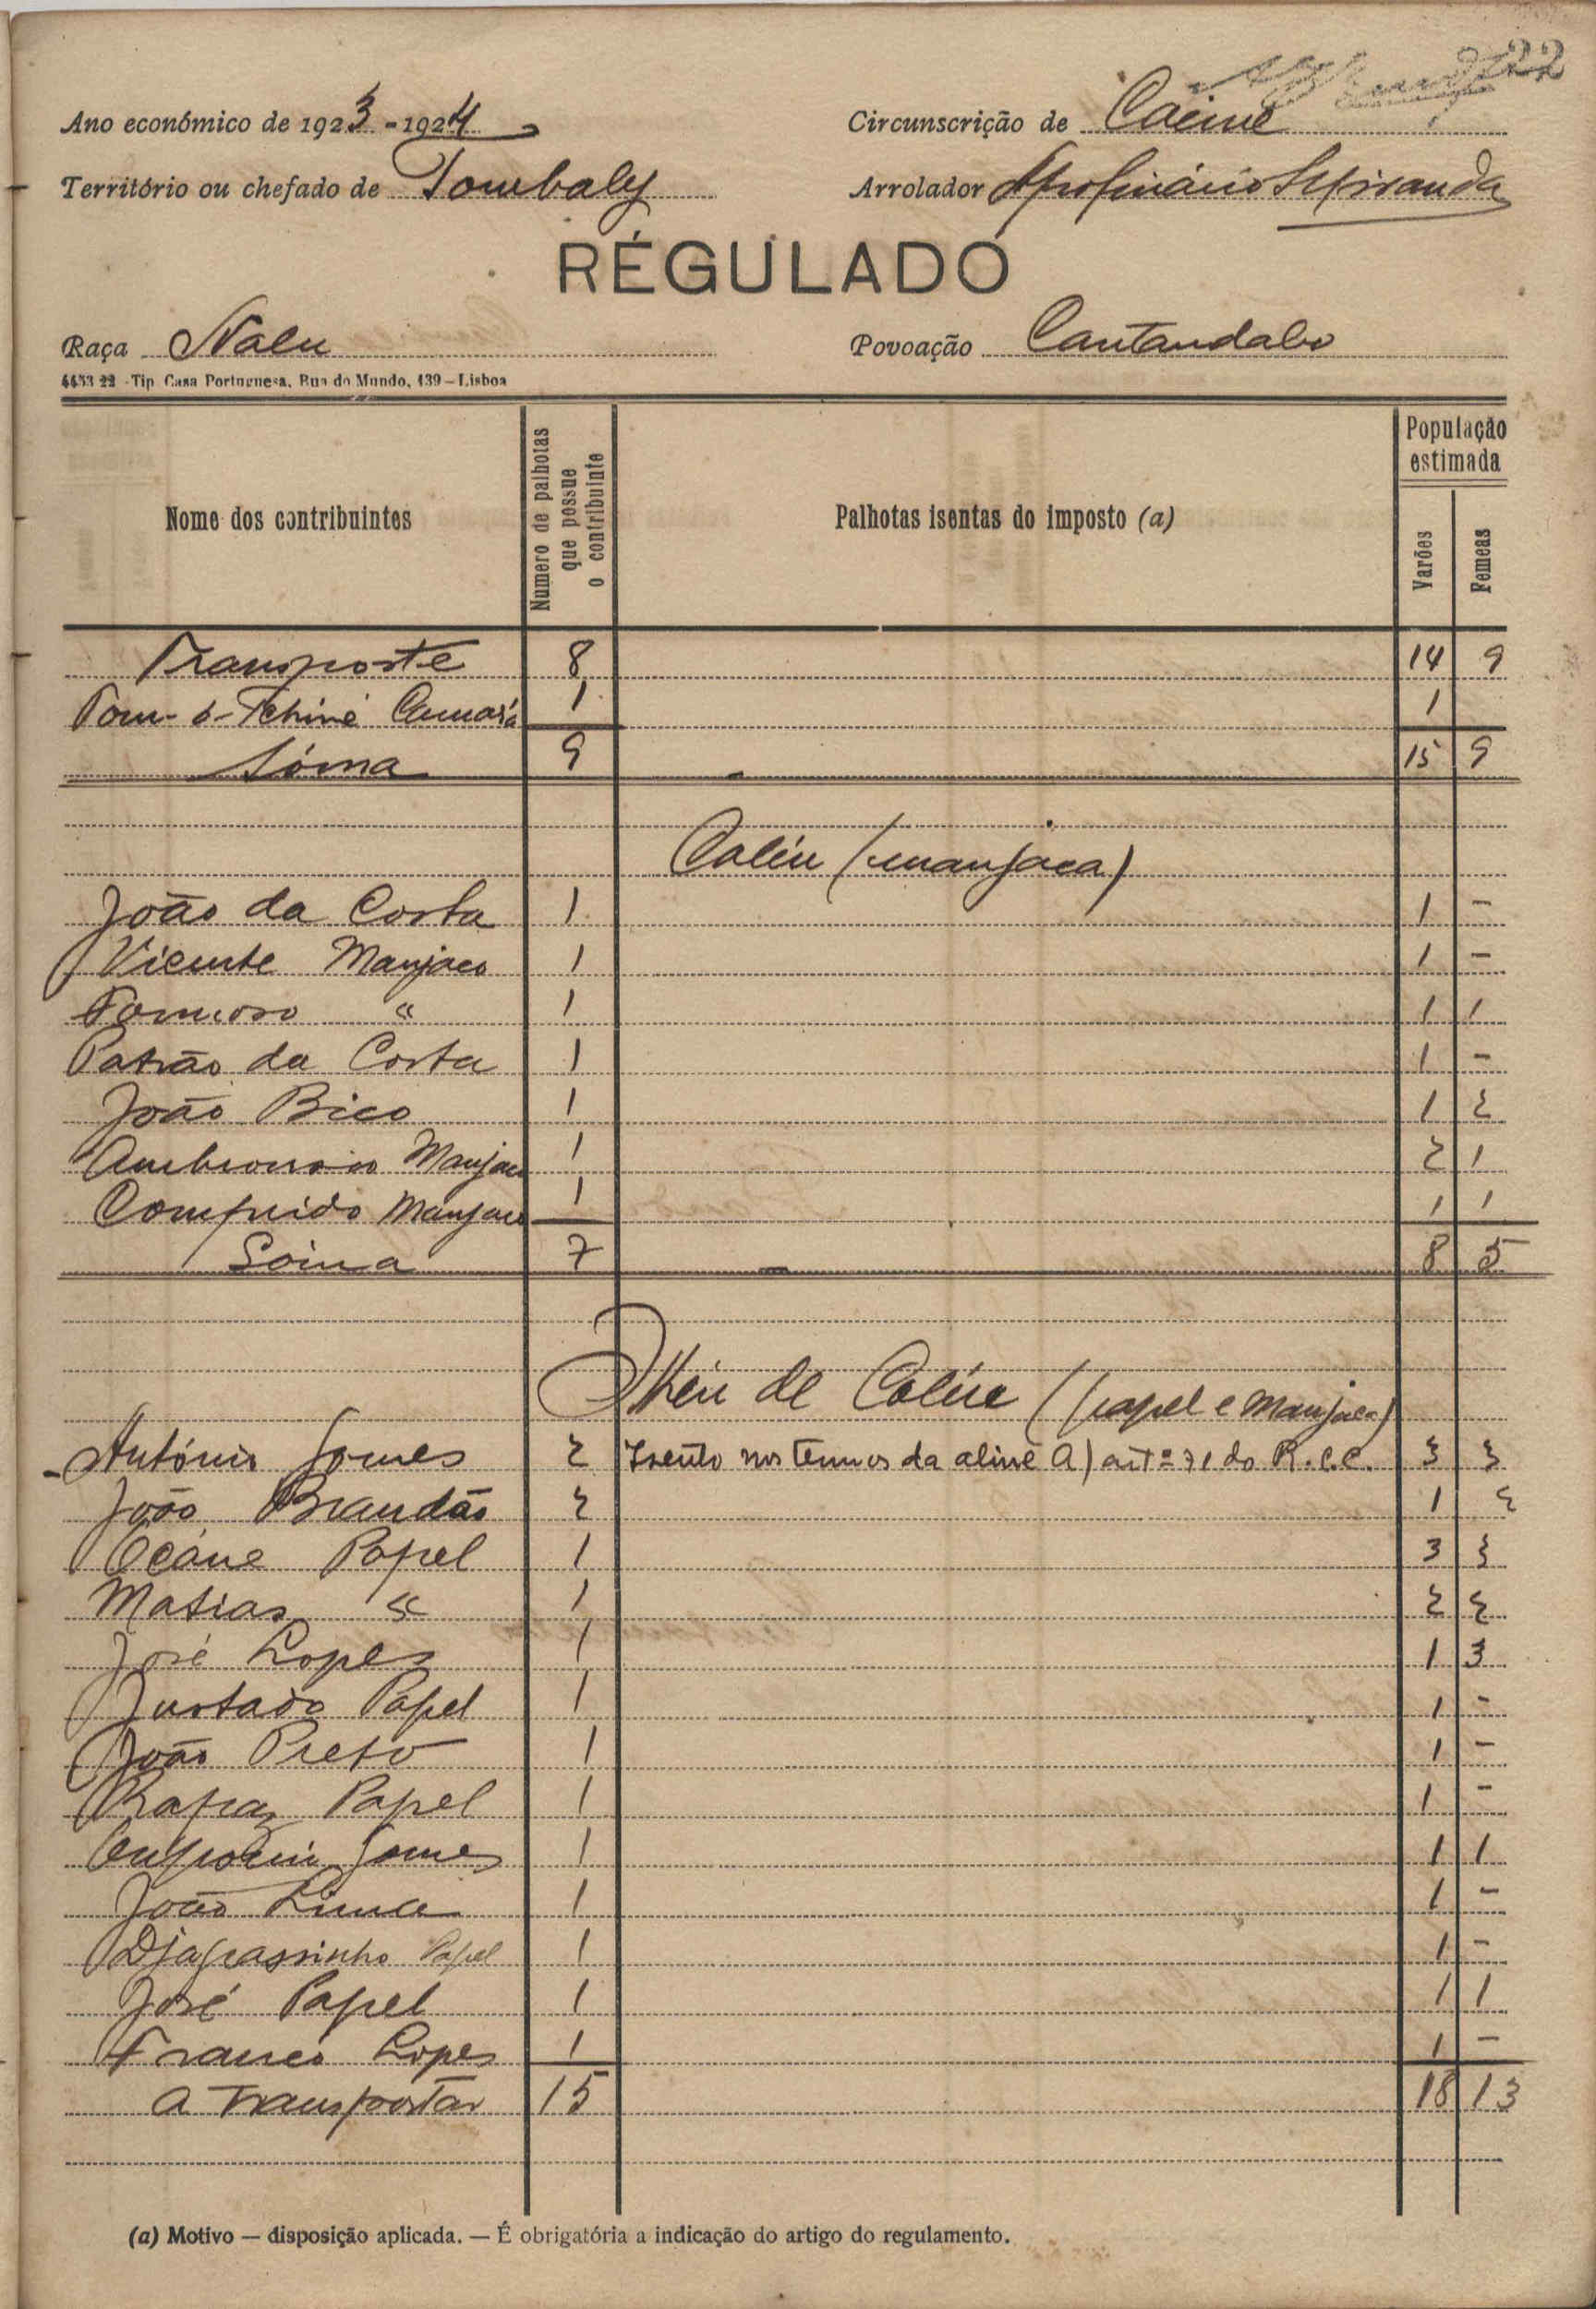 22
Ano económico de 1923-1924
Circunscrição de Cacine
Território ou chefado de Tombaly
Arrolador
RÉGULADO
Raça Nalu
Povoação Cantandabo
4453 22 - Tip. Casa Portuguesa, Rua do Mundo, 139 — Lisboa
Nome dos contribuintes
Numero de palhotas que possue o contribuinte
Palhotas isentas do imposto (a)
População estimada
Varões
Femeas
Transporte 8 14 9
Tom-b-Tchiné Camará 1 1
Sóma 9 15 9
Caléu (manjaca)
João da Costa 1 1 -
Vicente Manjaco 1 1 -
Formoso " 1 1 1
Patrão da Costa 1 1 -
João Bico 1 1 2
Manjaco 1 2 1
Comprido Manjaco 1 1 1
Soma 7 8 5
Ilhéu de Caléu (papel e manjaca)
António Gomes 2 Isento nos termos da aline A) artº 71 do R.C.C. 3 3
João Brandão 2 1 2
Ocáne Papel 1 3 3
Matias " 1 2 2
José Lopes 1 1 3
Papel 1 1 -
João Preto 1 1 -
Rapaz Papel 1 1 -
Gomes 1 1 1
João 1 1 -
Djagrassinho Papel 1 1 -
José Papel 1 1 1
Franco Lopes 1 1 -
A transportar 15 18 13
(a) Motivo — disposição aplicada. — É obrigatória a indicação do artigo do regulamento.